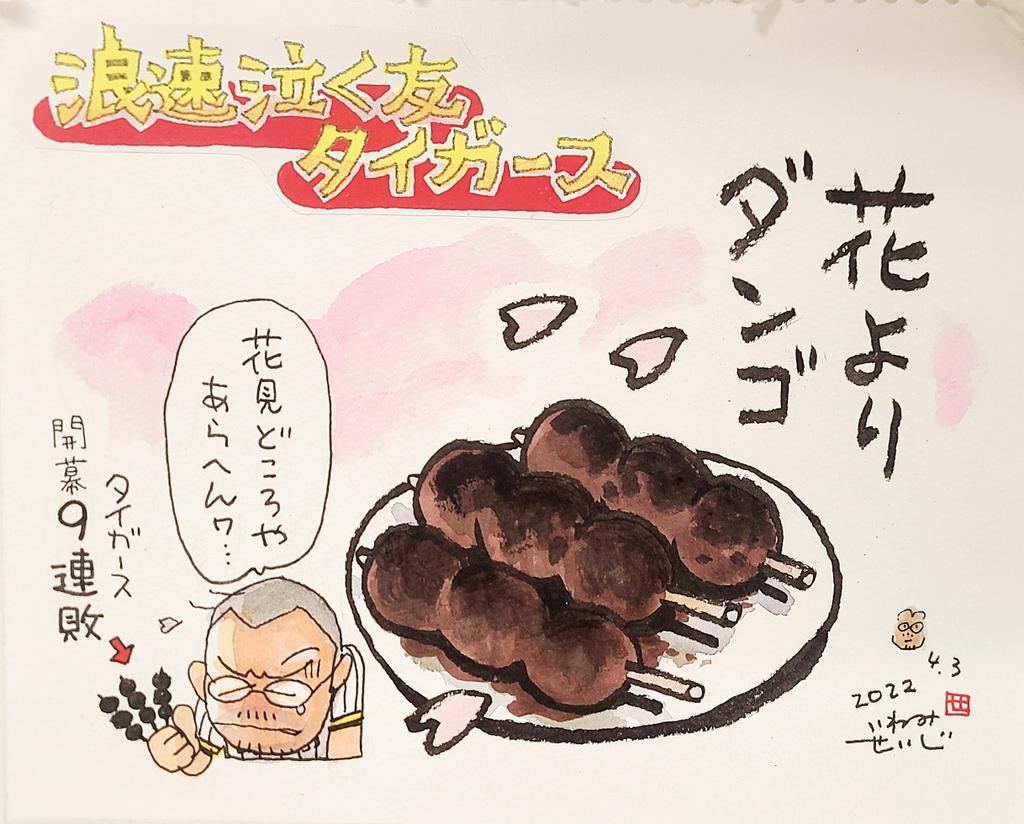 浪速泣く友
タイガース
花より
ダンゴ
花見どころや
あらへんワ…
タイガース
開幕9連敗
4.3
2022